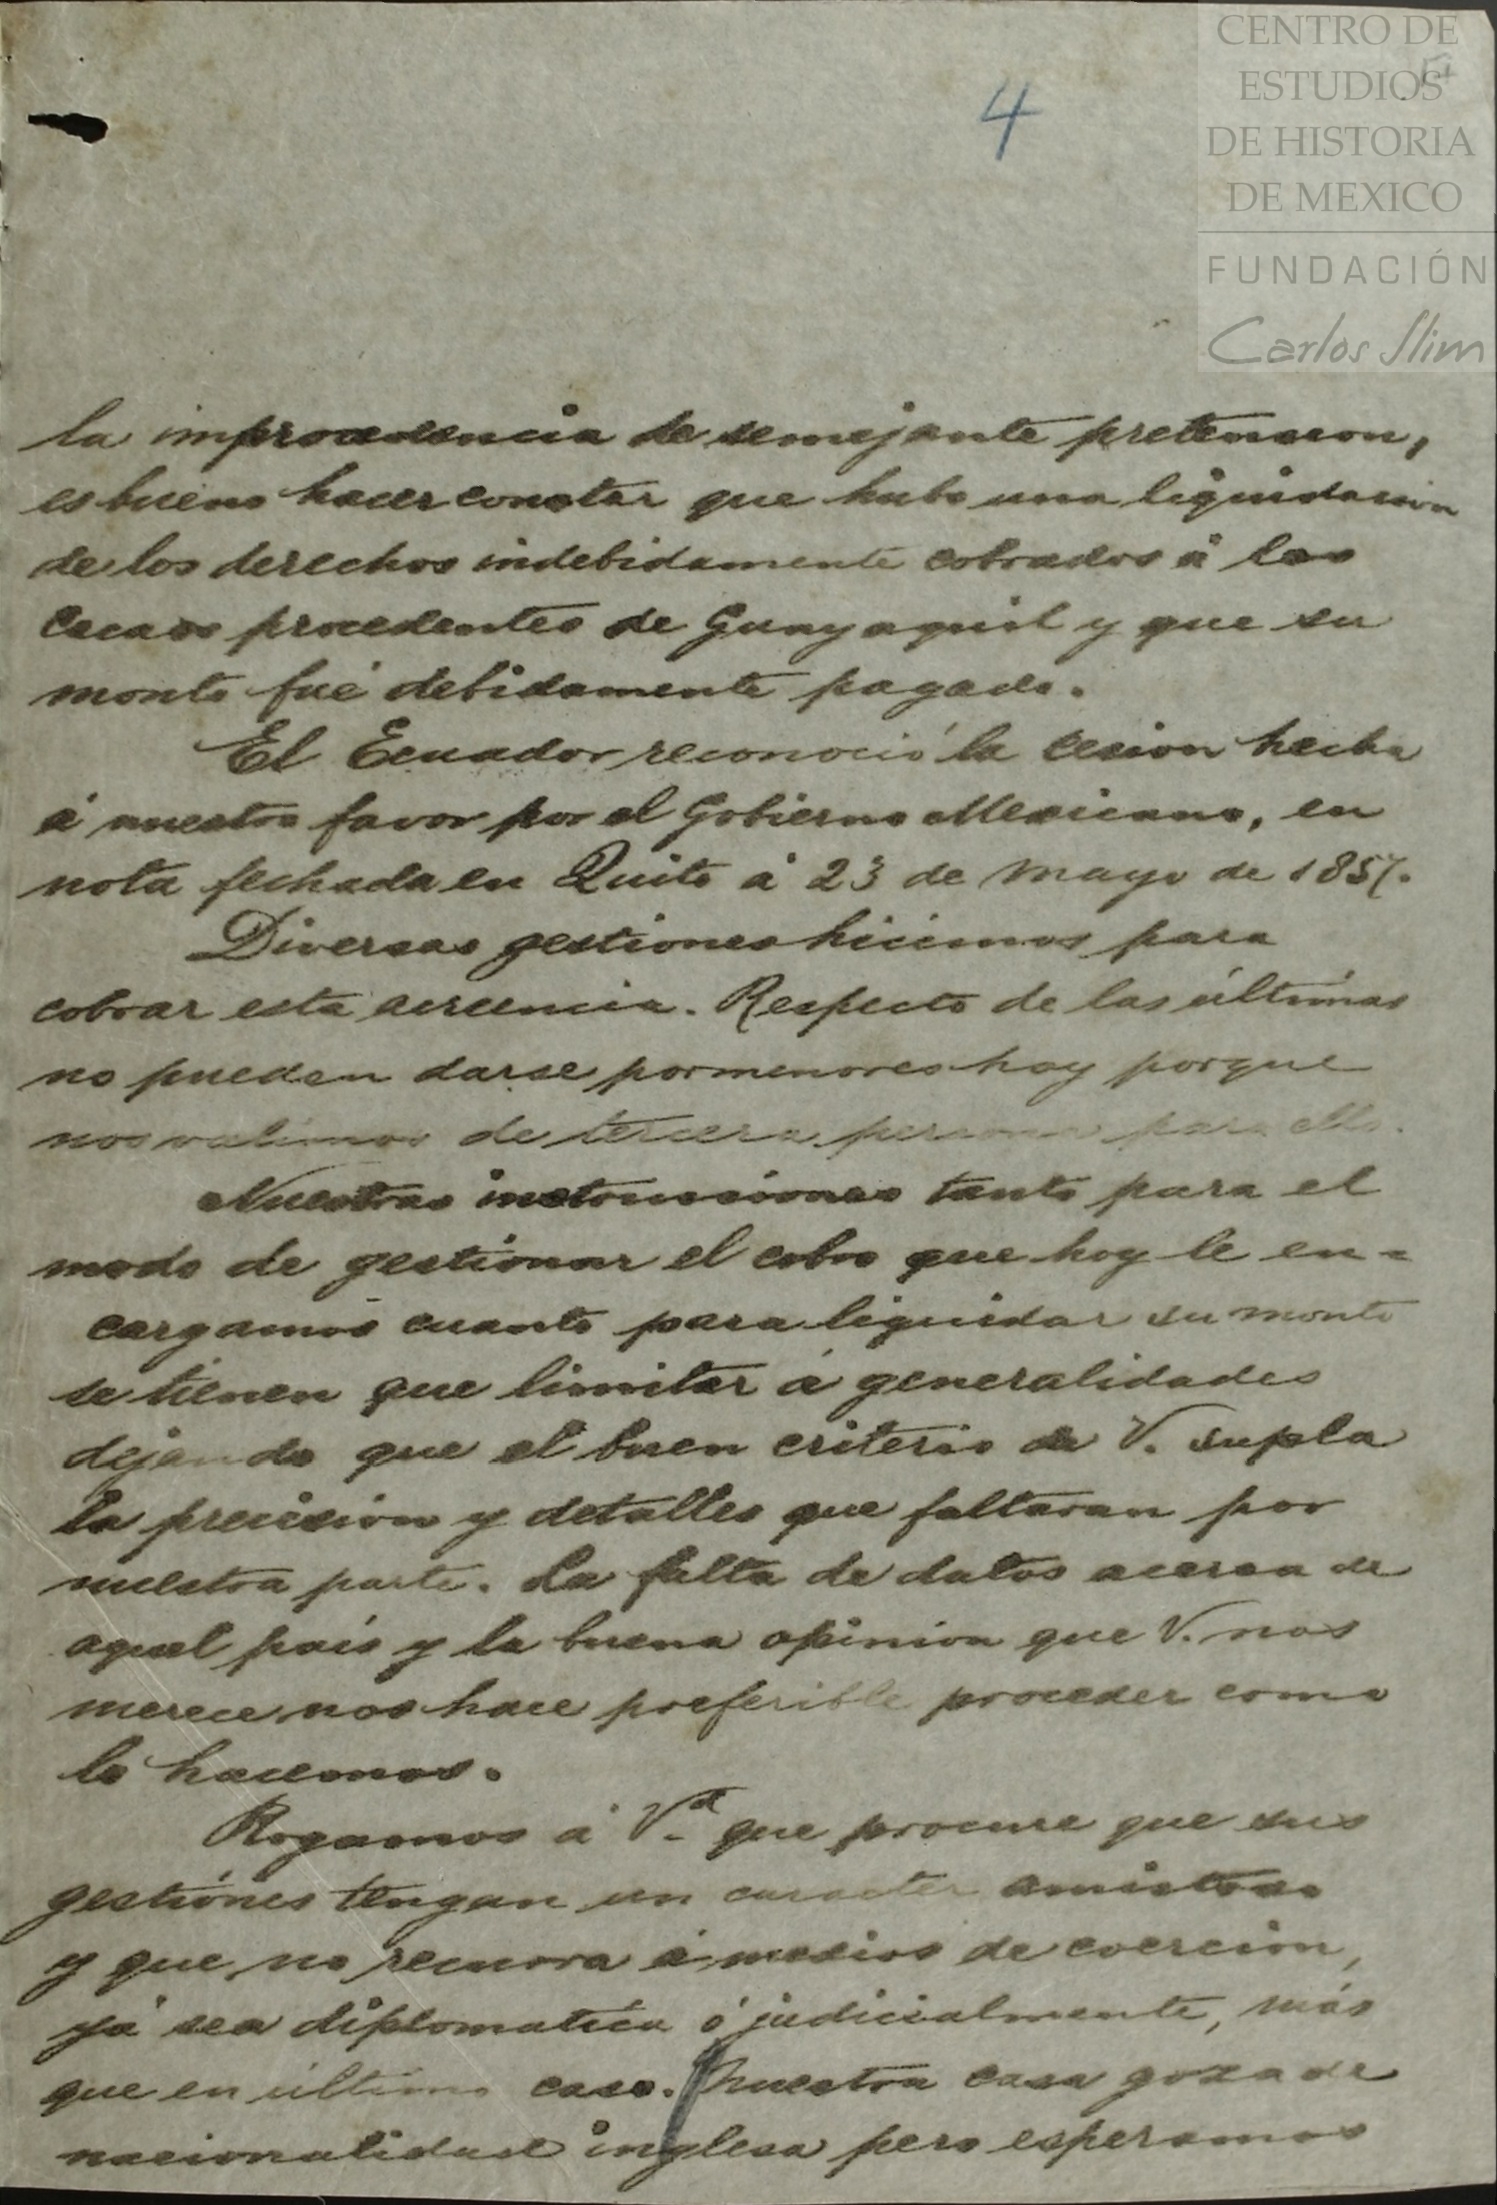 CENTRO DE
ESTUDIOS
DE HISTORIA
DE MEXICO
FUNDACIÓN
Carlos Slim
4
la improcedencia de semejante pretension,
es bueno hacer constar que hubo una liquidacion
de los derechos indebidamente cobrados á los
cacaos procedentes de Guayaquil y que su
monto fué debidamente pagado.
El Ecuador reconoció la cesion hecha
á nuestro favor por el Gobierno Mexicano, en
nota fechada en Quito á 23 de Mayo de 1857.
Diversas gestiones hicimos para
cobrar esta acreencia. Respecto de las últimas
no pueden darse pormenores hoy porque
nos valimos de tercera persona para ello.
Nuestras instrucciones tanto para el
modo de gestionar el cobro que hoy le en-
cargamos cuanto para liquidar su monto
se tienen que limitar á generalidades
dejando que el buen criterio de V. supla
la precision y detalles que faltaran por
nuestra parte. La falta de datos acerca de
aquel país y la buena opinion que V. nos
merece nos hace preferible proceder como
lo hacemos.
Rogamos á Vd. que procure que sus
gestiónes tengan un caracter amistoso
y que no recurra á medios de coercion,
yá sea diplomatica ó judicialmente, más
que en último caso. Nuestra casa goza de
nacionalidad inglesa pero esperamos